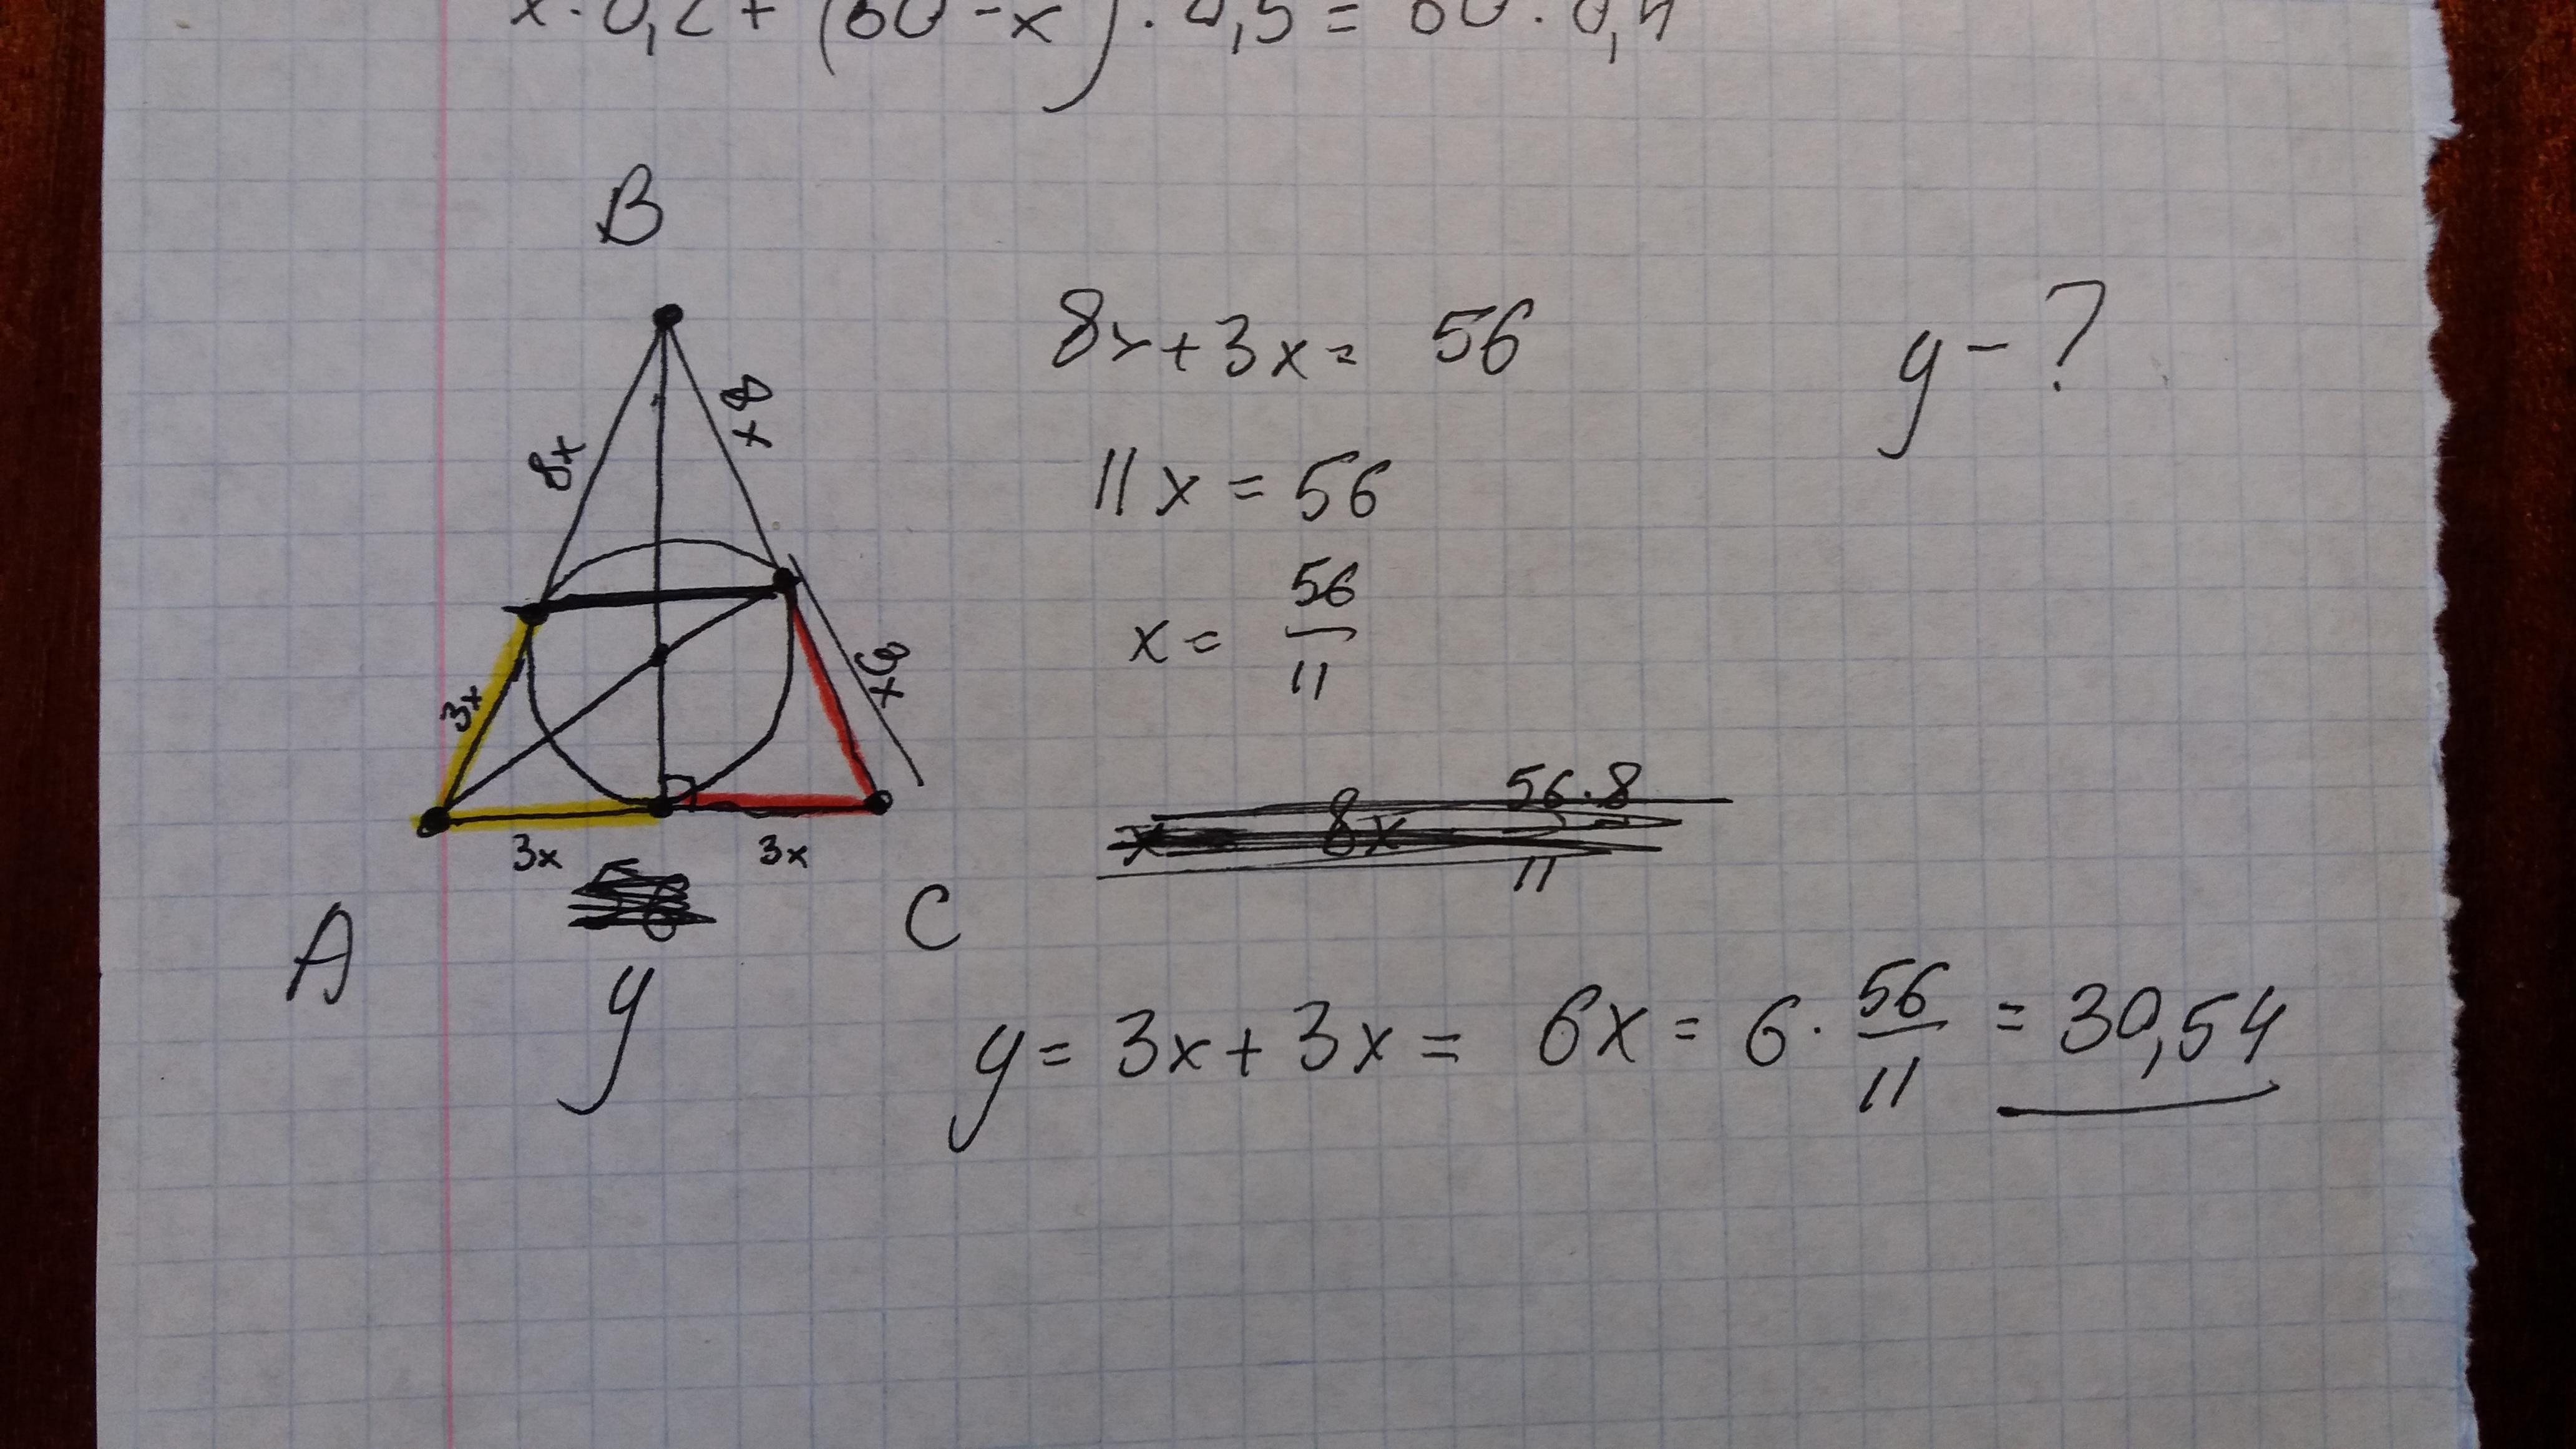 x · 0,2 + (60 - x) · 0,5 = 60 · 0,4
B
8x
8x
3x
3x
3x
3x
A
C
y
8x + 3x = 56
y - ?
11x = 56
x = 56/11
8x 56·8/11
y = 3x + 3x = 6x = 6 · 56/11 = 30,54